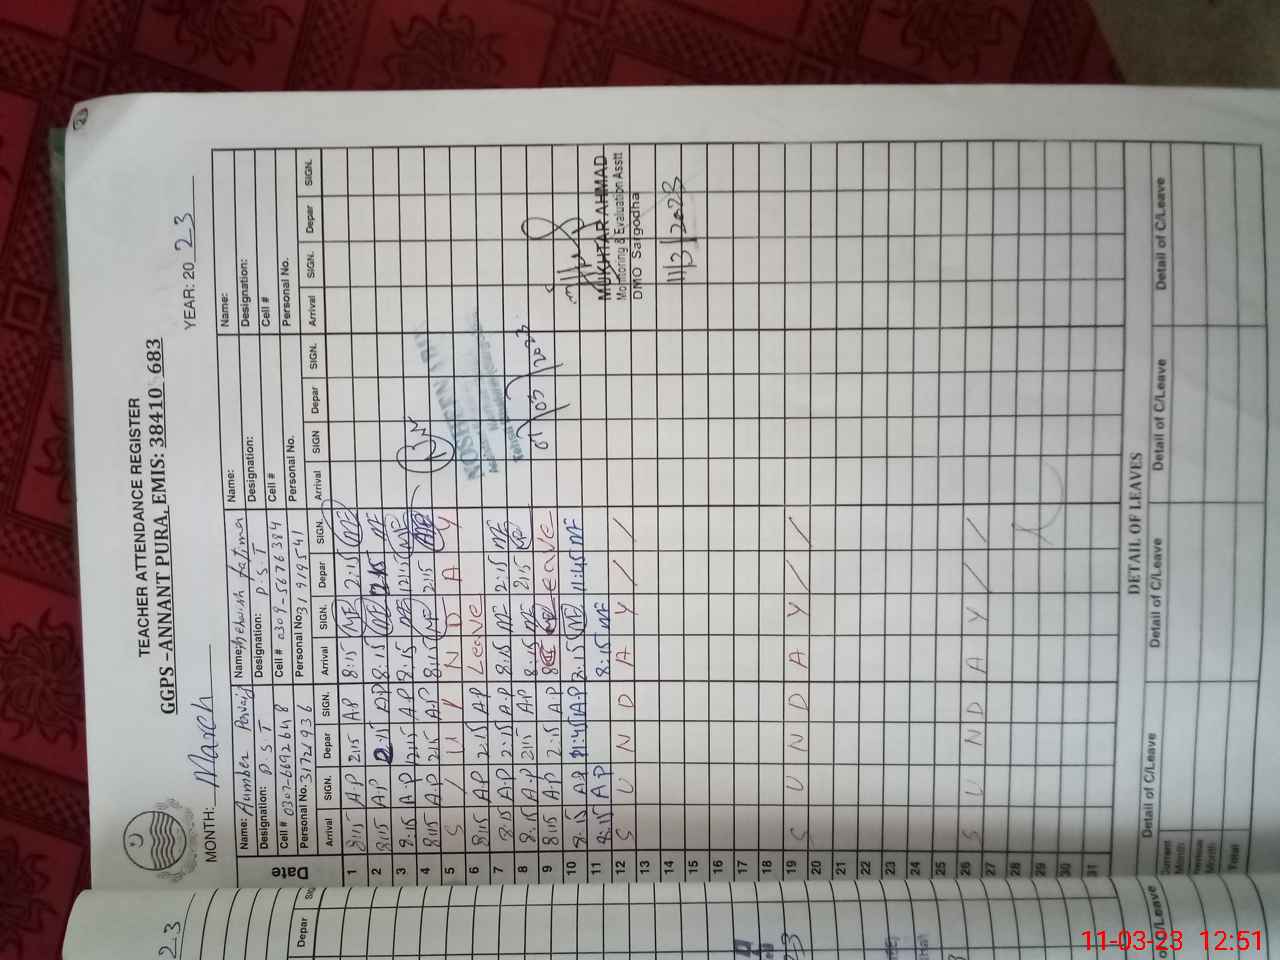 TEACHER ATTENDANCE REGISTER
GGPS -ANNANT PURA, EMIS: 38410 683
MONTH: March YEAR: 20 23
Name: Aumber Pervaiz Name: Mehwish fatima Name: Name:
Designation: P.S.T Designation: P.S.T Designation: Designation:
Cell # 0307-6692648 Cell # 0309-5676384 Cell # Cell #
Personal No. 31721936 Personal No. 31919541 Personal No. Personal No.
Date Arrival SIGN. Depar SIGN. Arrival SIGN. Depar SIGN. Arrival SIGN Depar SIGN. Arrival SIGN. Depar SIGN.
1 8:15 A.P 2:15 A.P 8:15 MF 2:15 MF
2 8:15 A.P 2:15 A.P 8:15 MF 2:15 MF
3 8:15 A.P 12:15 A.P 8:15 MF 12:15 MF
4 8:15 A.P 2:15 A.P 8:15 MF 2:15 MF
5 S U N D A Y
6 8:15 A.P 2:15 A.P Leave
7 8:15 A.P 2:15 A.P 8:15 MF 2:15 MF
8 8:15 A.P 2:15 A.P 8:15 MF 2:15 MF
9 8:15 A.P 2:15 A.P Leave
07/03/2023
10 8:15 A.P 11:45 A.P 8:15 MF 11:45 MF
11 8:15 A P 8:15 MF
MUKHTAR AHMAD
Monitoring & Evaluation Asstt
DMO Sargodha
11/3/2023
12 S U N D A Y / /
13
14
15
16
17
18
19 S U N D A Y / /
20
21
22
23
24
25
26 S U N D A Y / /
27
28
29
30
31
DETAIL OF LEAVES
Detail of C/Leave Detail of C/Leave Detail of C/Leave Detail of C/Leave
Current Month
Previous Month
Total
23
Depar
of C/Leave
11-03-23 12:51